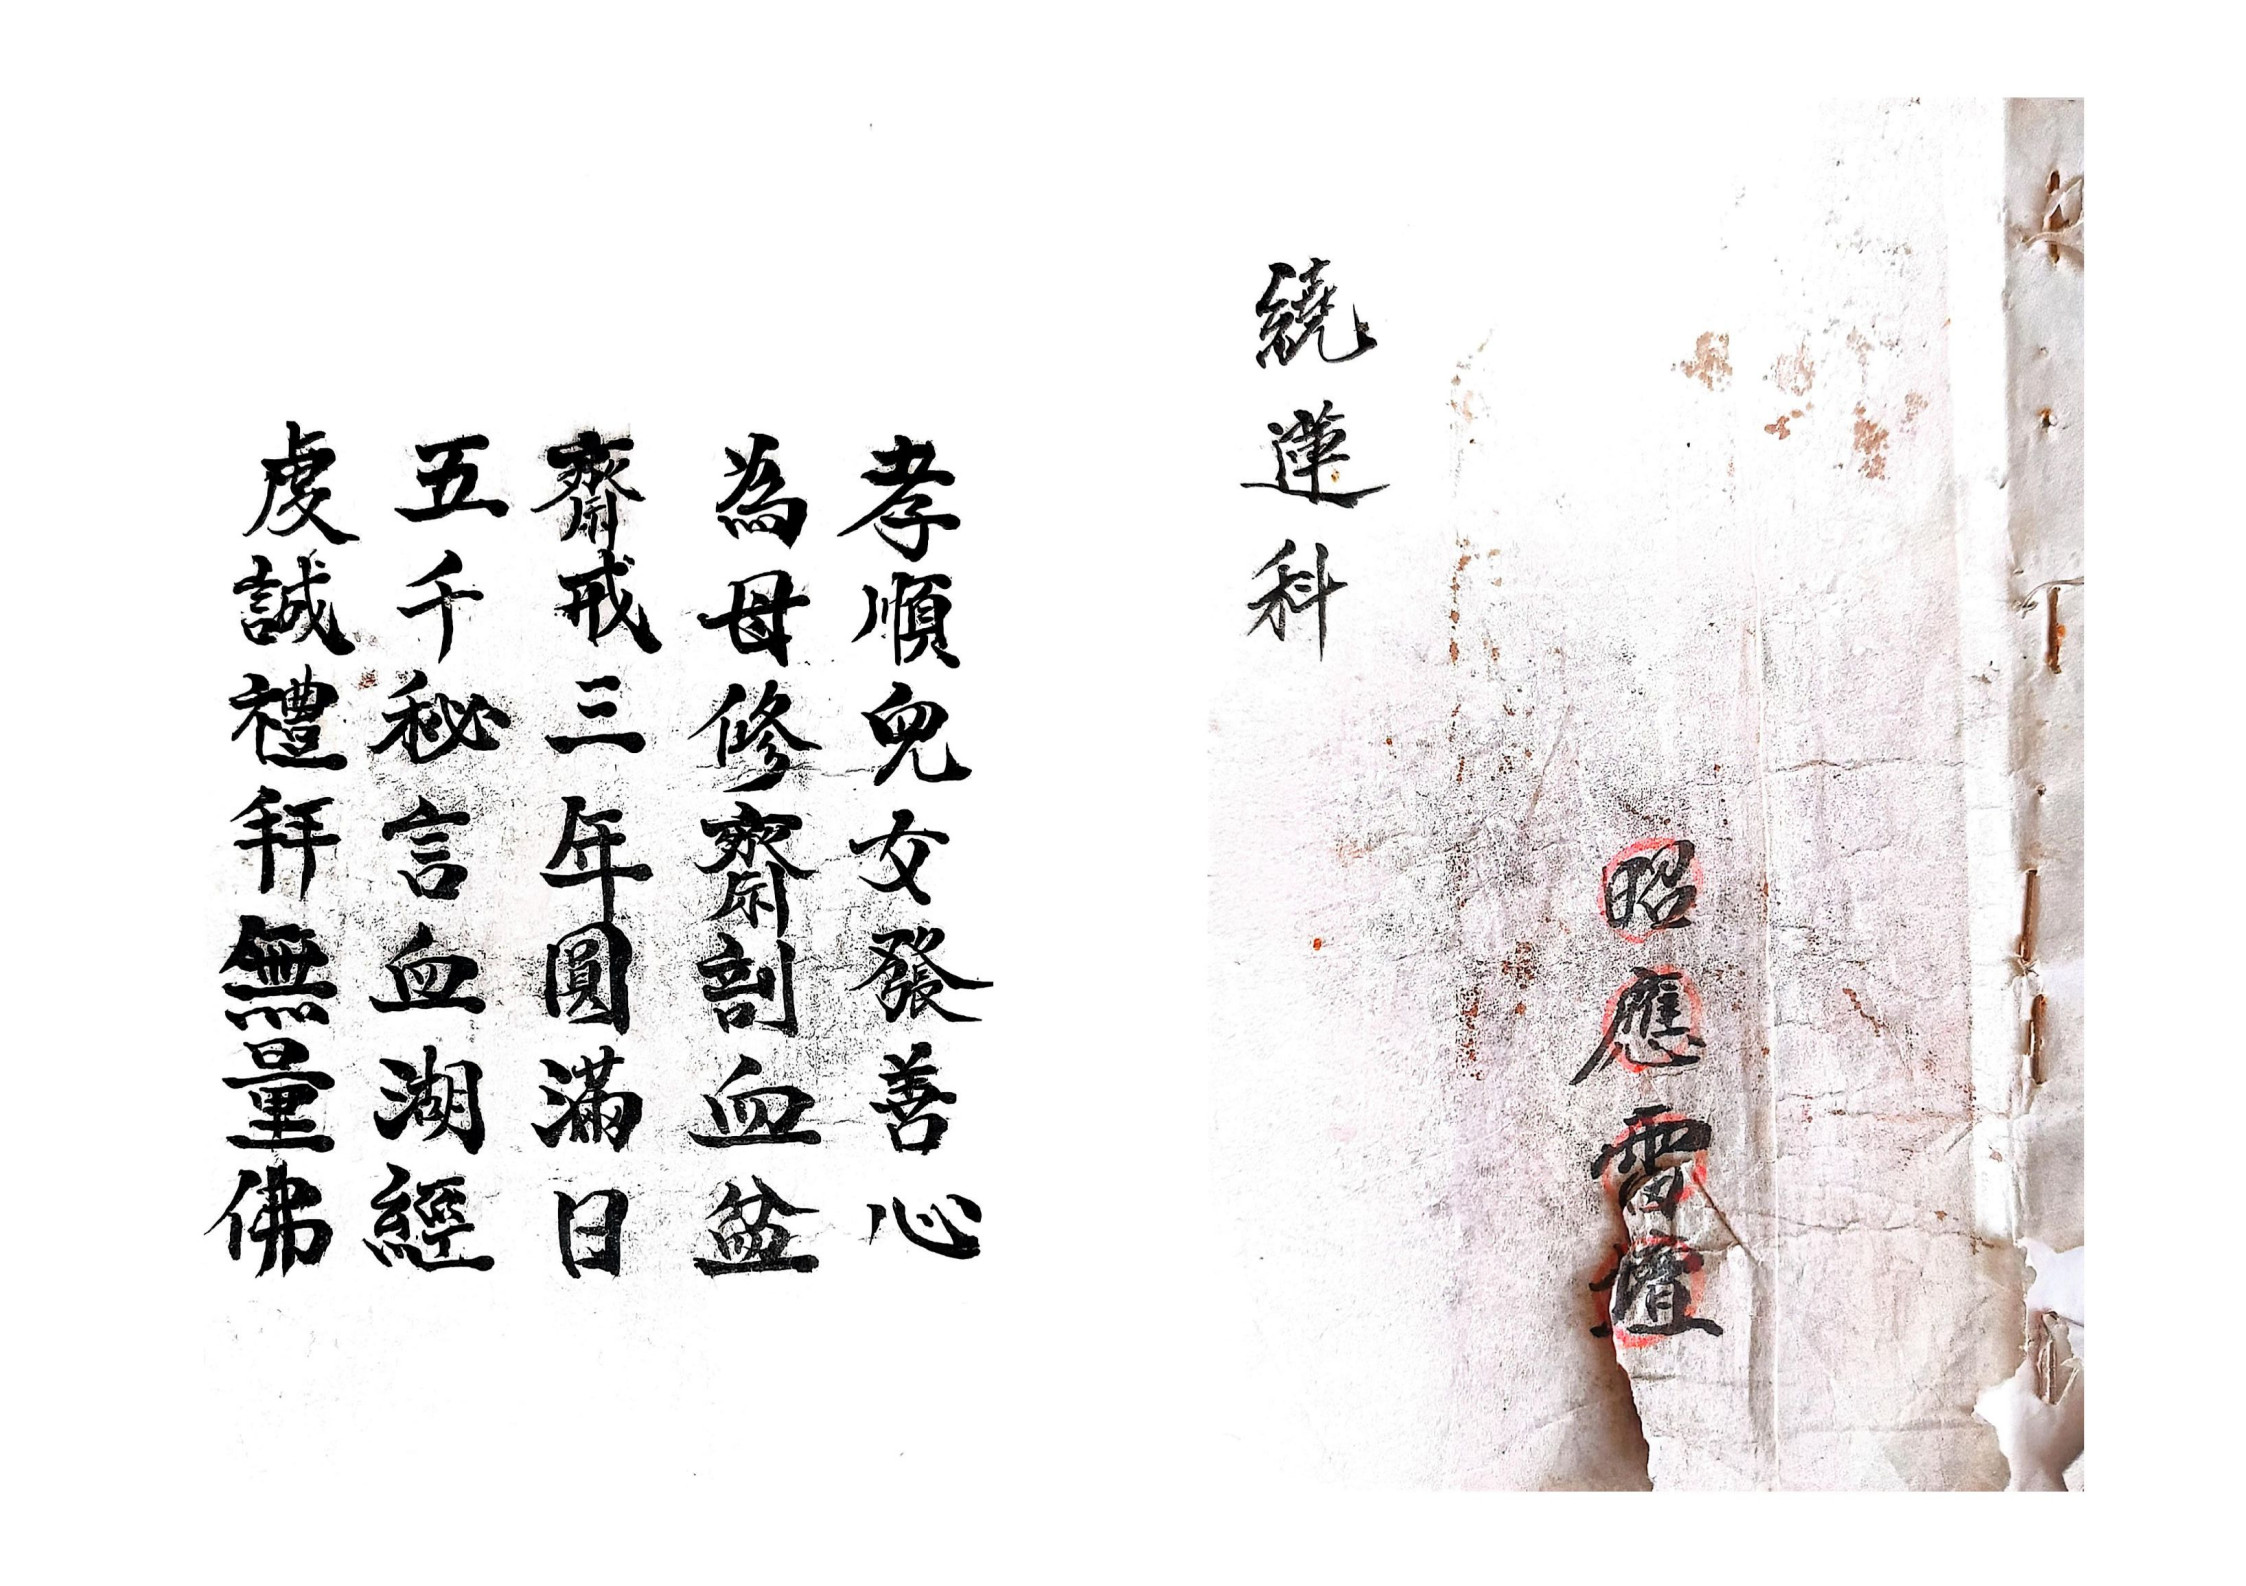 繞蓮科
昭應雷壇
孝順兒女發善心
為母修齋剖血盆
齋戒三年圓滿日
五千秘言血湖經
虔誠禮拜無量佛